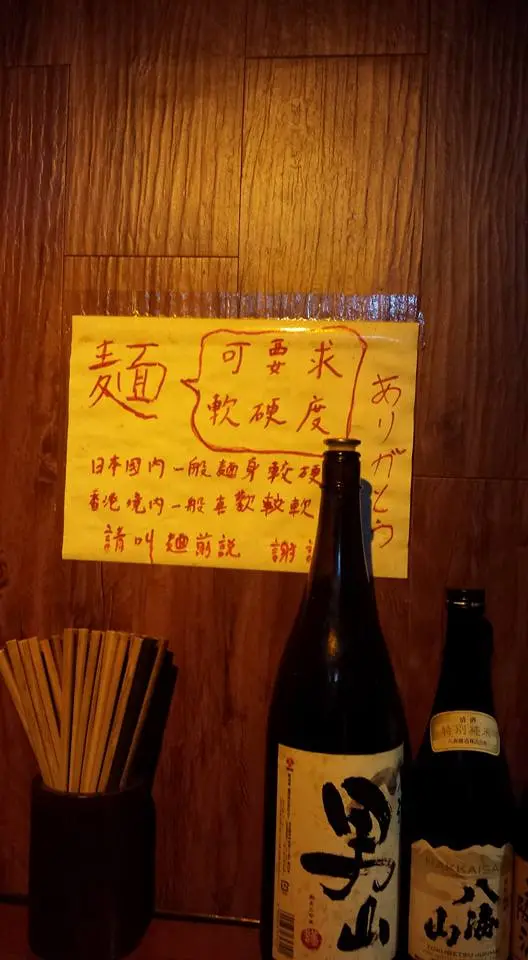 麵 可要求
軟硬度
日本國内一般麵身較硬
香港境内一般喜歡較軟
請叫麵前説 謝
ありがとう
男山
清酒
特別純米
HAKKAISA
八海山
TOKUBETSU JUNMAI